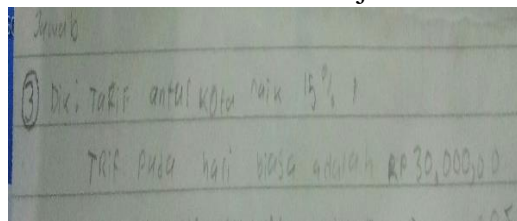 Jawab
③ Dik: TaRiF antar Kota naik 15%
TRiF Pada hari biasa adalah RP 30,000,00